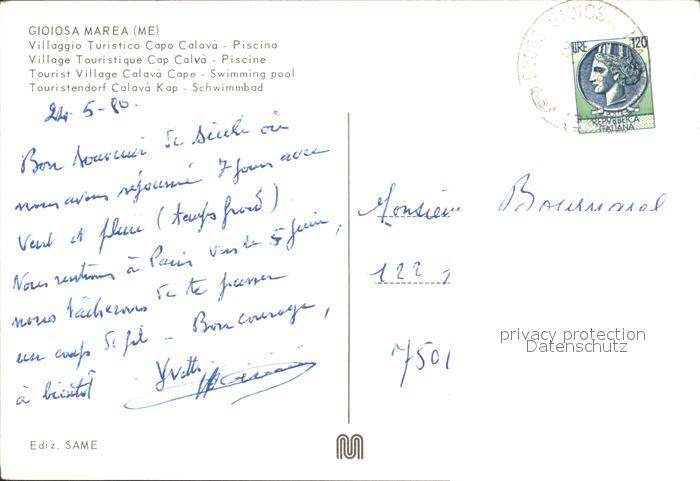 GIOIOSA MAREA (ME)
Villaggio Turistico Capo Calavà - Piscina
Village Touristique Cap Calvà - Piscine
Tourist Village Calavà Cape - Swimming pool
Touristendorf Calavà Kap - Schwimmbad
24-5-80.
Bon souvenir de Sicile où
nous avons séjourné 7 jours avec
vent et pluie (temps froid)
Nous rentrons à Paris vers le 5 juin,
nous tâcherons de te passer
un coup de fil - Bon courage,
à bientôt Yvette
Ediz. SAME
GIOIOSA
LIRE 120
REPVBBLICA
ITALIANA
Monsieur
122
7501
privacy protection
Datenschutz